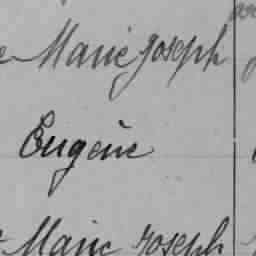 Marie Joseph
Eugène
Marie Joseph